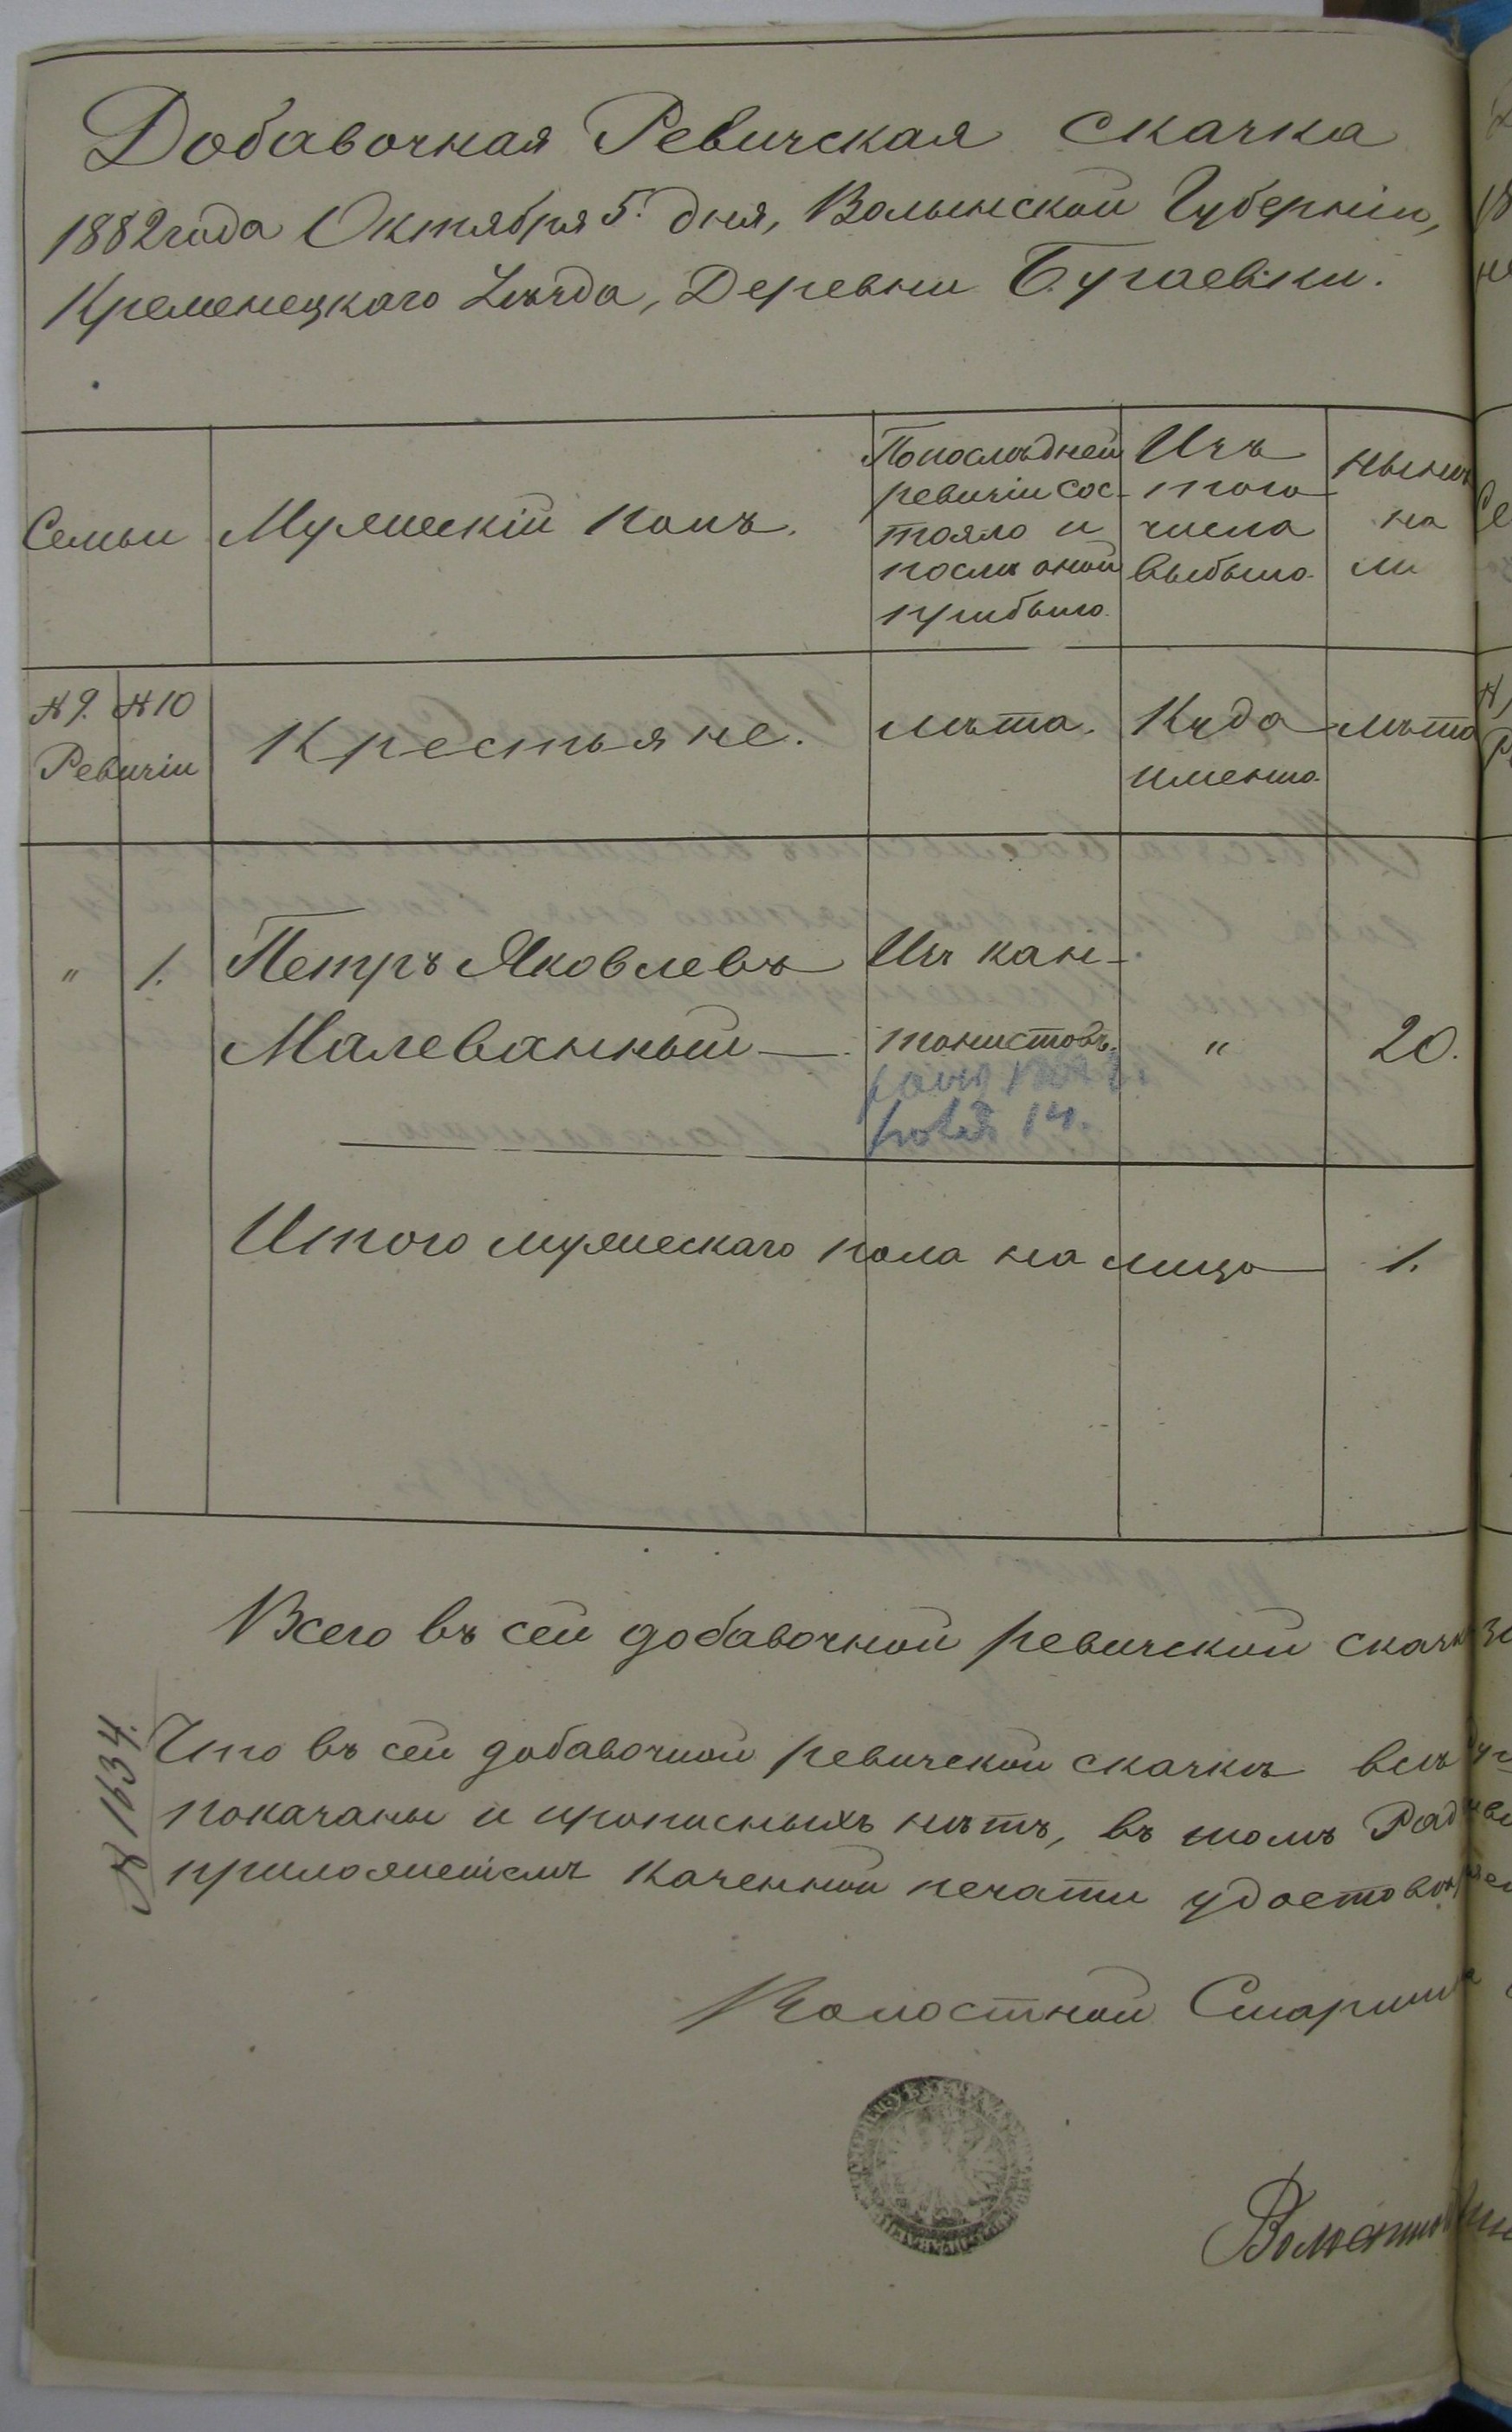 Добавочная Ревизская скачка
1882 года Октября 5. дня, Волынской Губерніи,
Кременецкаго Уѣзда, Деревни Бугаевки.
Семьи
Мужескій полъ.
По послѣдней
ревизіи сос-
тояло и
послѣ оной
прибыло.
Изъ
того
числа
выбыло.
Нынѣ
на
ли
№ 9. № 10
Ревизіи
Крестьяне.
лѣта.
Куда
именно.
лѣта
" 1. Петръ Яковлевъ Из кан-
Малеванный — тонистовъ. " 20.
14.
Итого мужескаго пола на лицо 1.
Всего въ сей добавочной ревизской сказ
№ 1634.
Что въ сей добавочной ревизской сказкѣ всѣ
показаны и прописныхъ нѣтъ, въ томъ Рад
приложеніемъ казенной печати удостов
Волостной Старшина